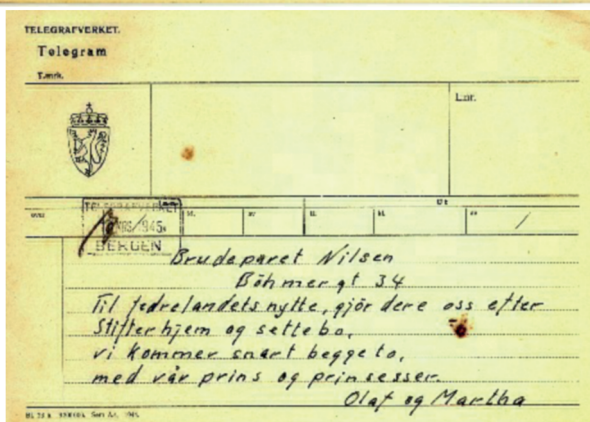 TELEGRAFVERKET.
Telegram
T.merk.
L.nr.
Ut
kl.
av
til
kl.
av
TELEGRAFVERKET
1945
BERGEN
Brudeparet Nilsen
Böhmer gt 34
Til fedrelandets nytte, gjör dere oss efter
Stifter hjem og settebo,
vi kommer snart begge to,
med vår prins og prinsesser.
Olaf og Martha